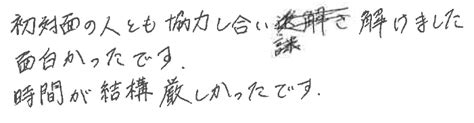 初対面の人とも協力し合い謎解き解けました
面白かったです.
時間が結構厳しかったです.